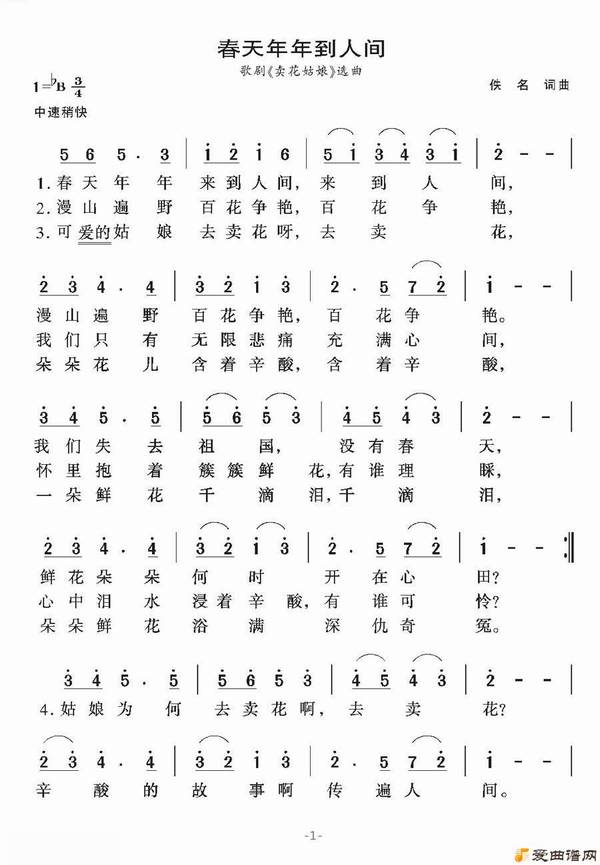 春天年年到人间
歌剧《卖花姑娘》选曲
1=♭B 3/4
佚 名 词曲
中速稍快
5 6 5 · 3 | 1 2 1 6 | 5 1 3 4 3 1 | 2 - - |
1.春天年年来到人间,来到人间,
2.漫山遍野百花争艳,百花争艳,
3.可爱的姑娘去卖花呀,去卖花,
2 3 4 · 4 | 3 2 1 3 | 2 · 5 7 2 | 1 - - |
漫山遍野百花争艳,百花争艳。
我们只有无限悲痛充满心间,
朵朵花儿含着辛酸,含着辛酸,
3 4 5 · 5 | 5 6 5 3 | 4 5 4 3 | 2 - - |
我们失去祖国,没有春天,
怀里抱着簇簇鲜花,有谁理睬,
一朵鲜花千滴泪,千滴泪,
2 3 4 · 3 | 3 2 1 3 | 2 · 5 7 2 | 1 - - :|
鲜花朵朵何时开在心田?
心中泪水浸着辛酸,有谁可怜?
朵朵鲜花浴满深仇奇冤。
3 4 5 · 5 | 3 4 5 3 | 4 5 4 3 | 2 - - |
4.姑娘为何去卖花啊,去卖花?
2 3 2 · 4 | 3 2 1 3 | 2 · 5 7 2 | 1 - - |
辛酸的故事啊传遍人间。
-1-
爱曲谱网